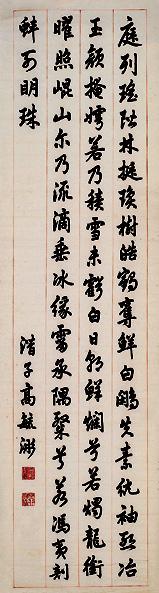 庭列瑤階林挺瓊樹皓鶴奪鮮白鷳失素紈袖慙冶
玉顏掩嫮若乃積雪未虧白日朝鮮爛兮若燭龍銜
曜照崐山尓乃流滴垂冰緣霤承隅粲兮若馮夷剖
蚌列明珠
潛子高毓浵